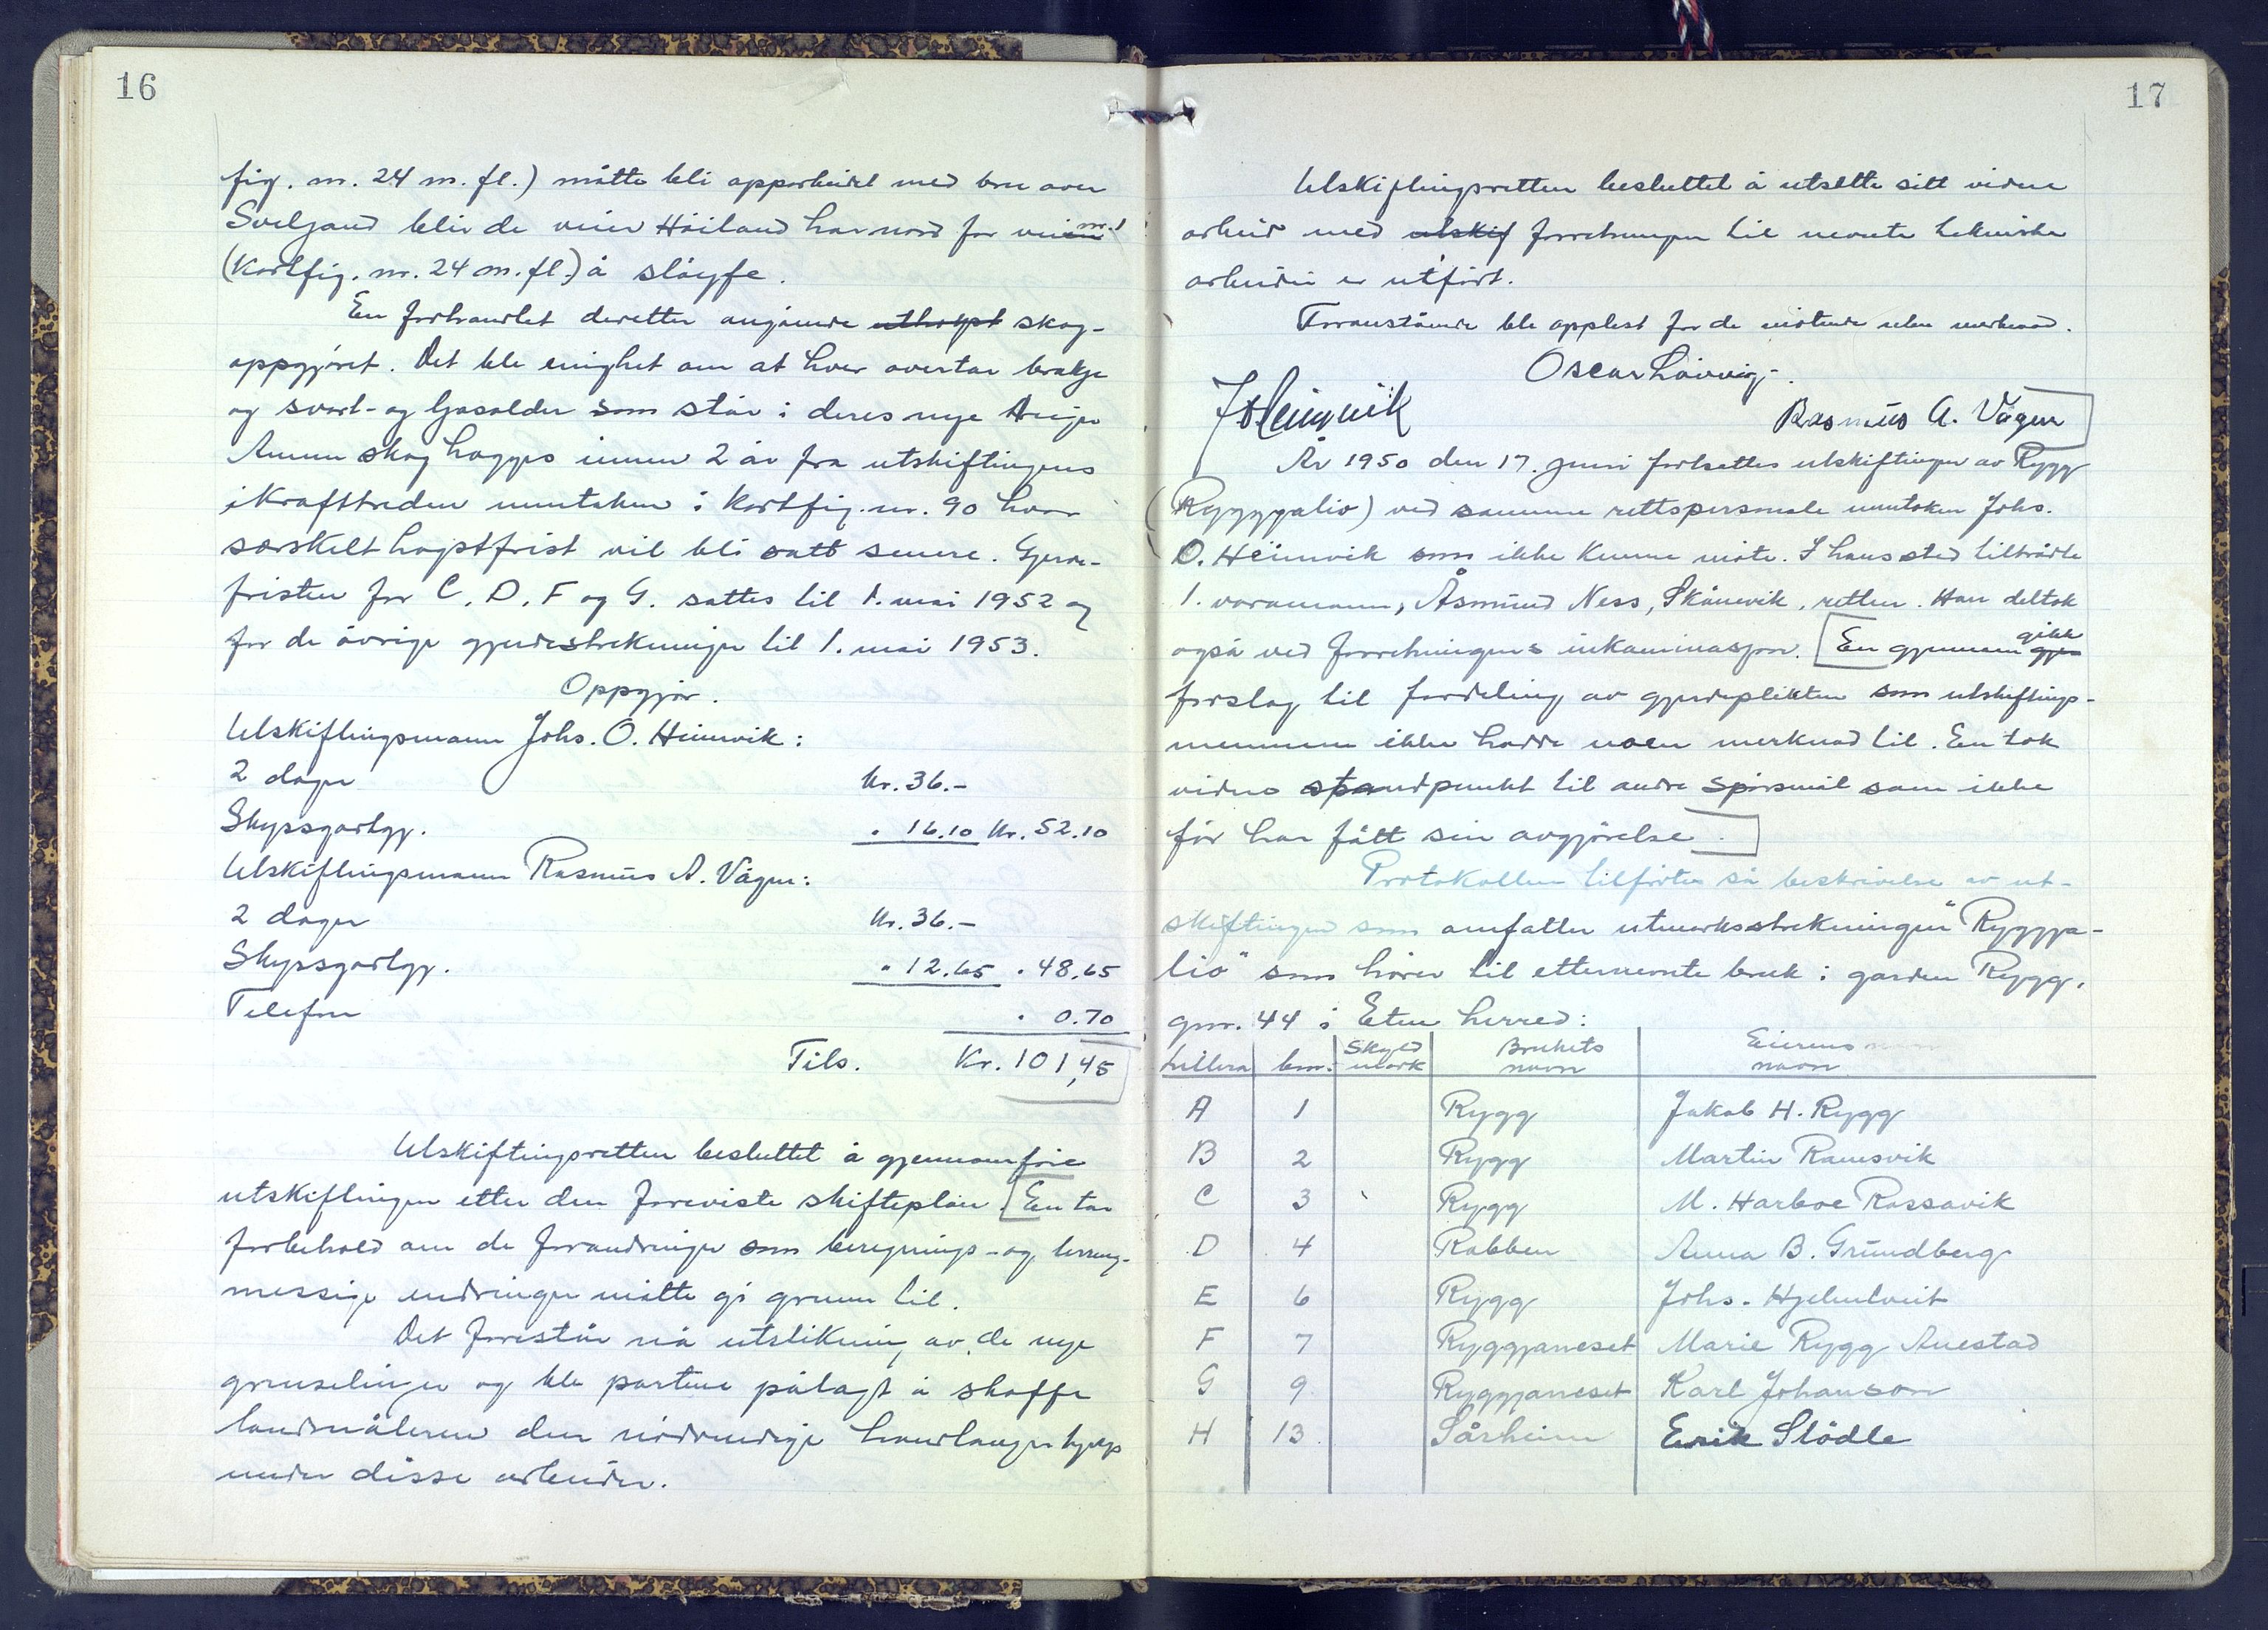 16
fig. nr. 24 m. fl.) måtte bli opparbeidet med bru over
Sveljanå blir de veier Höiland har nord for veien nr.
(Kartfig. nr. 24 m. fl.) å sløyfe.
En forhandlet deretter angående uthogst skog-
oppgjöret. Det ble enighet om at hver overtar brakje
og svart- og gråolder som står i deres nye teiger
Annen skog hogges innen 2 år fra utskiftingens
ikrafttreden unntaken i kartfig. nr. 90 hvor
særskelt hogstfrist vil bli satt senere. Gjerde-
fristen for C, D, F og G. settes til 1. mai 1952 og
for de övrige gjerdestrekninger til 1. mai 1953.
Oppgjør.
Utskiftingsmann Johs. O. Heimvik:
2 dager Kr. 36.-
Skyssgodtgj. " 16.10 Kr. 52.10
Utskiftingsmann Rasmus A. Vågen:
2 dager Kr. 36.-
Skyssgodtgj. " 12.65 " 48.65
Telefon " 0.70
Tils. Kr. 101,45
Utskiftingsretten besluttet å gjennomføre
utskiftingen etter den foreviste skifteplan. [En tar
forbehold om de forandringer som beregnings- og
messige endringer måtte gi grunn til.
Det forestår nå utstikning av de nye
grenselinjer og ble partene pålagt å skaffe
landmåleren den nödvendige handlangerhjelp
under disse arbeider.
17
Utskiftingsretten besluttet å utsette sitt videre
arbeid med utskif forretningen til nevnte tekniske
arbeider er utfört.
Foranstående ble opplest for de møtende uten merknad.
Oscar Løvvig.
J. O. Heimvik Rasmus A. Vågen
År 1950 den 17. juni fortsettes utskiftingen av Rygg
(Ryggjalio) ved samme rettspersonale unntaken Johs.
O. Heimvik som ikke kunne møte. I hans sted tiltrådte
1. varamann, Åsmund Ness, Skånevik, retten. Han deltok
også ved forretningens inkaminasjon. [En gjennom gjen gikk
forslag til fordeling av gjerdeplikten som utskiftings-
mennene ikke hadde noen merknad til. En tok
videre standpunkt til andre spörsmål som ikke
för har fått sin avgjörelse.]
Protokollen tilføres så beskrivelse av ut-
skiftingen som omfatter utmarksstrekningen "Ryggja-
lio" som hörer til etternevnte bruk i garden Rygg,
gnr. 44 i Etne herred:
Litera bnr. Skyld mark Brukets navn Eierens navn
A 1 Rygg Jakob H. Rygg
B 2 Rygg Martin Ramsvik
C 3 Rygg M. Harboe Rossavik
D 4 Rabben Anna B. Grundberg
E 6 Rygg Johs. Hjelmtveit
F 7 Ryggjaneset Marie Rygg Auestad
G 9 Ryggjaneset Karl Johanson
H 13 Sårheim Erik Stödle